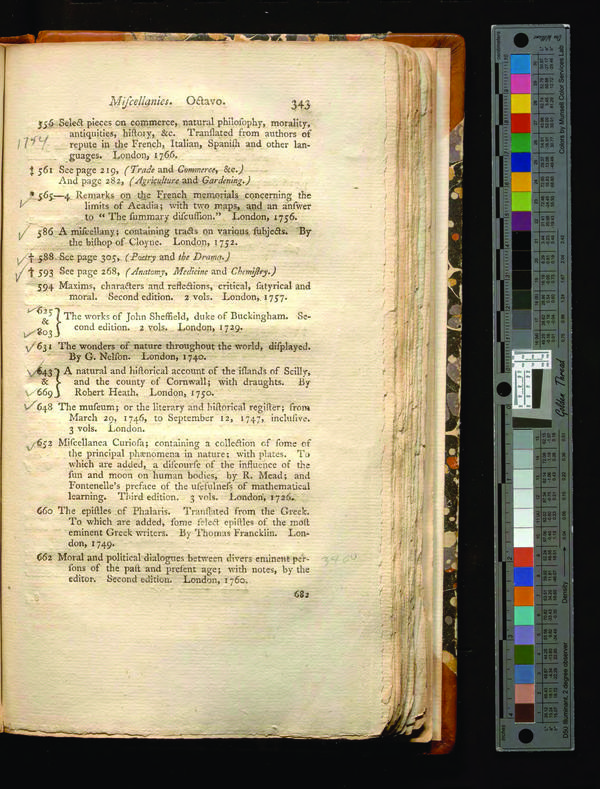 Miſcellanies. Octavo. 343
556 Select pieces on commerce, natural philoſophy, morality,
antiquities, hiſtory, &c. Tranſlated from authors of
repute in the French, Italian, Spaniſh and other lan-
guages. London, 1766.
1794
† 561 See page 219, (Trade and Commerce, &c.)
And page 282, (Agriculture and Gardening.)
* 565—4 Remarks on the French memorials concerning the
limits of Acadia; with two maps, and an anſwer
to “ The ſummary diſcuſſion.” London, 1756.
586 A miſcellany; containing tracts on various ſubjects. By
the biſhop of Cloyne. London, 1752.
† 588 See page 305, (Poetry and the Drama.)
† 593 See page 268, (Anatomy, Medicine and Chemiſtry.)
594 Maxims, characters and reflections, critical, ſatyrical and
moral. Second edition. 2 vols. London, 1757.
625 & 803 } The works of John Sheffield, duke of Buckingham. Se-
cond edition. 2 vols. London, 1729.
631 The wonders of nature throughout the world, diſplayed.
By G. Nelſon. London, 1740.
643 & 669 } A natural and hiſtorical account of the iſlands of Scilly,
and the county of Cornwall; with draughts. By
Robert Heath. London, 1750.
648 The muſeum; or the literary and hiſtorical regiſter; from
March 29, 1746, to September 12, 1747, incluſive.
3 vols. London.
652 Miſcellanea Curioſa; containing a collection of ſome of
the principal phænomena in nature; with plates. To
which are added, a diſcourſe of the influence of the
ſun and moon on human bodies, by R. Mead; and
Fontenelle's preface of the uſefulneſs of mathematical
learning. Third edition. 3 vols. London, 1726.
660 The epiſtles of Phalaris. Tranſlated from the Greek.
To which are added, ſome ſelect epiſtles of the moſt
eminent Greek writers. By Thomas Francklin. Lon-
don, 1749.
662 Moral and political dialogues between divers eminent per-
ſons of the paſt and preſent age; with notes, by the
editor. Second edition. London, 1760.
682
Colors by Munsell Color Services Lab
Golden Thread
Density
D50 Illuminant, 2 degree observer